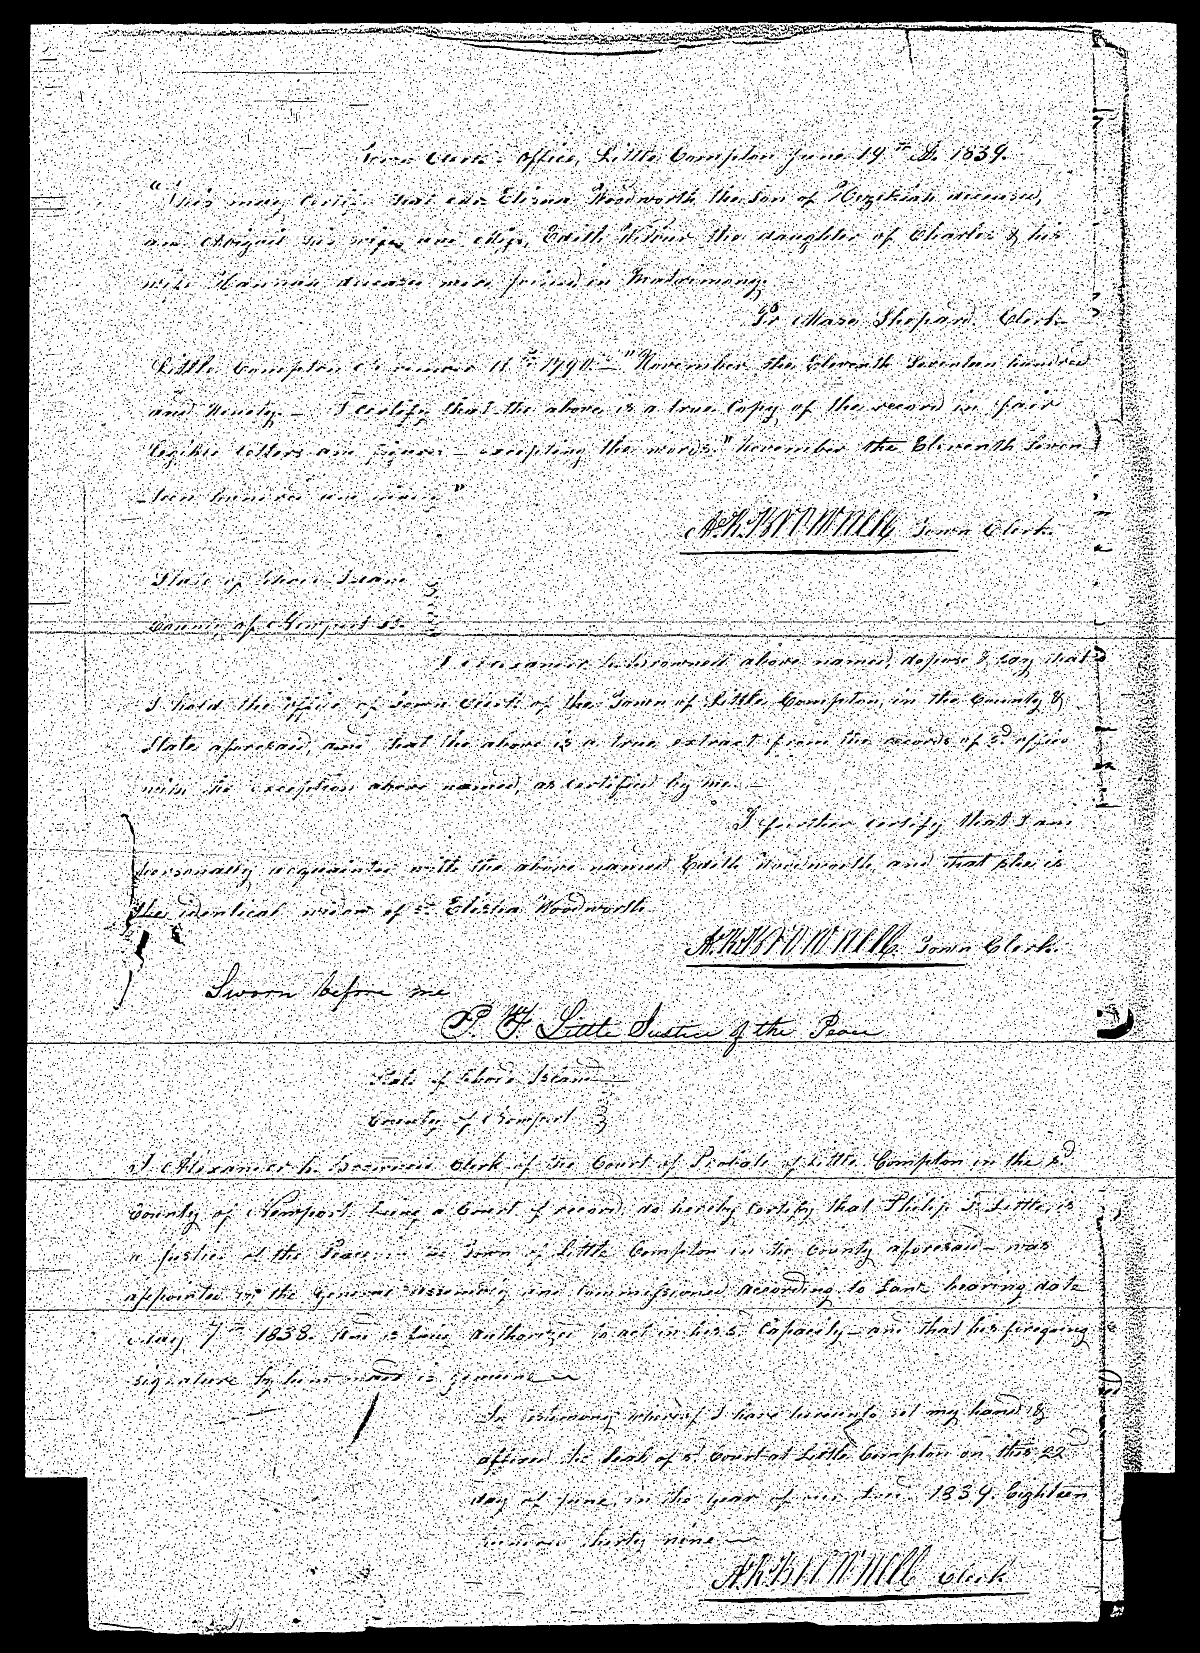 Town Clerk's office, Little Compton June 19th A.D. 1839.
"This may Certify that Mr Elisha Woodworth the son of Hezekiah deceased,
and Abigail his wife and Miss Edith Wilbur the daughter of Charles & his
wife Hannah deceased were joined in Matrimony.
Pr Shepard Clerk
Little Compton November 11th 1790. — "November the Eleventh Seventeen hundred
and Ninety. — I certify that the above is a true Copy of the record in fair
legible letters and figures — excepting the words "November the Eleventh Seven-
-teen hundred and ninety"
A. B. Brownell Town Clerk.
State of Rhode Island
County of Newport ss.
I Alexander B. Brownell above named, depose & say that
I hold the office of Town Clerk of the Town of Little Compton, in the County &
State aforesaid, and that the above is a true extract from the records of sd office
with the exception above named, as certified by me. —
I further certify that I am
personally acquainted with the above named Edith Woodworth, and that she is
the identical widow of sd Elisha Woodworth
A. B. Brownell Town Clerk.
Sworn before me
P. F. Little Justice of the Peace
State of Rhode Island
County of Newport
I Alexander B. Brownell Clerk of the Court of Probate of Little Compton in the sd
County of Newport being a Court of record, do hereby certify that Philip F. Little, is
a Justice of the Peace in the Town of Little Compton in the County aforesaid — was
appointed by the General Assembly and Commissioned according to Law bearing date
May 7th 1838. And is duly authorized to act in his sd Capacity — and that his foregoing
signature by him made is genuine —
In testimony whereof I have hereunto set my hand &
affixed the Seal of sd Court at Little Compton on this 22d
day of June, in the year of our Lord 1839. Eighteen
hundred thirty nine —
A. B. Brownell Clerk